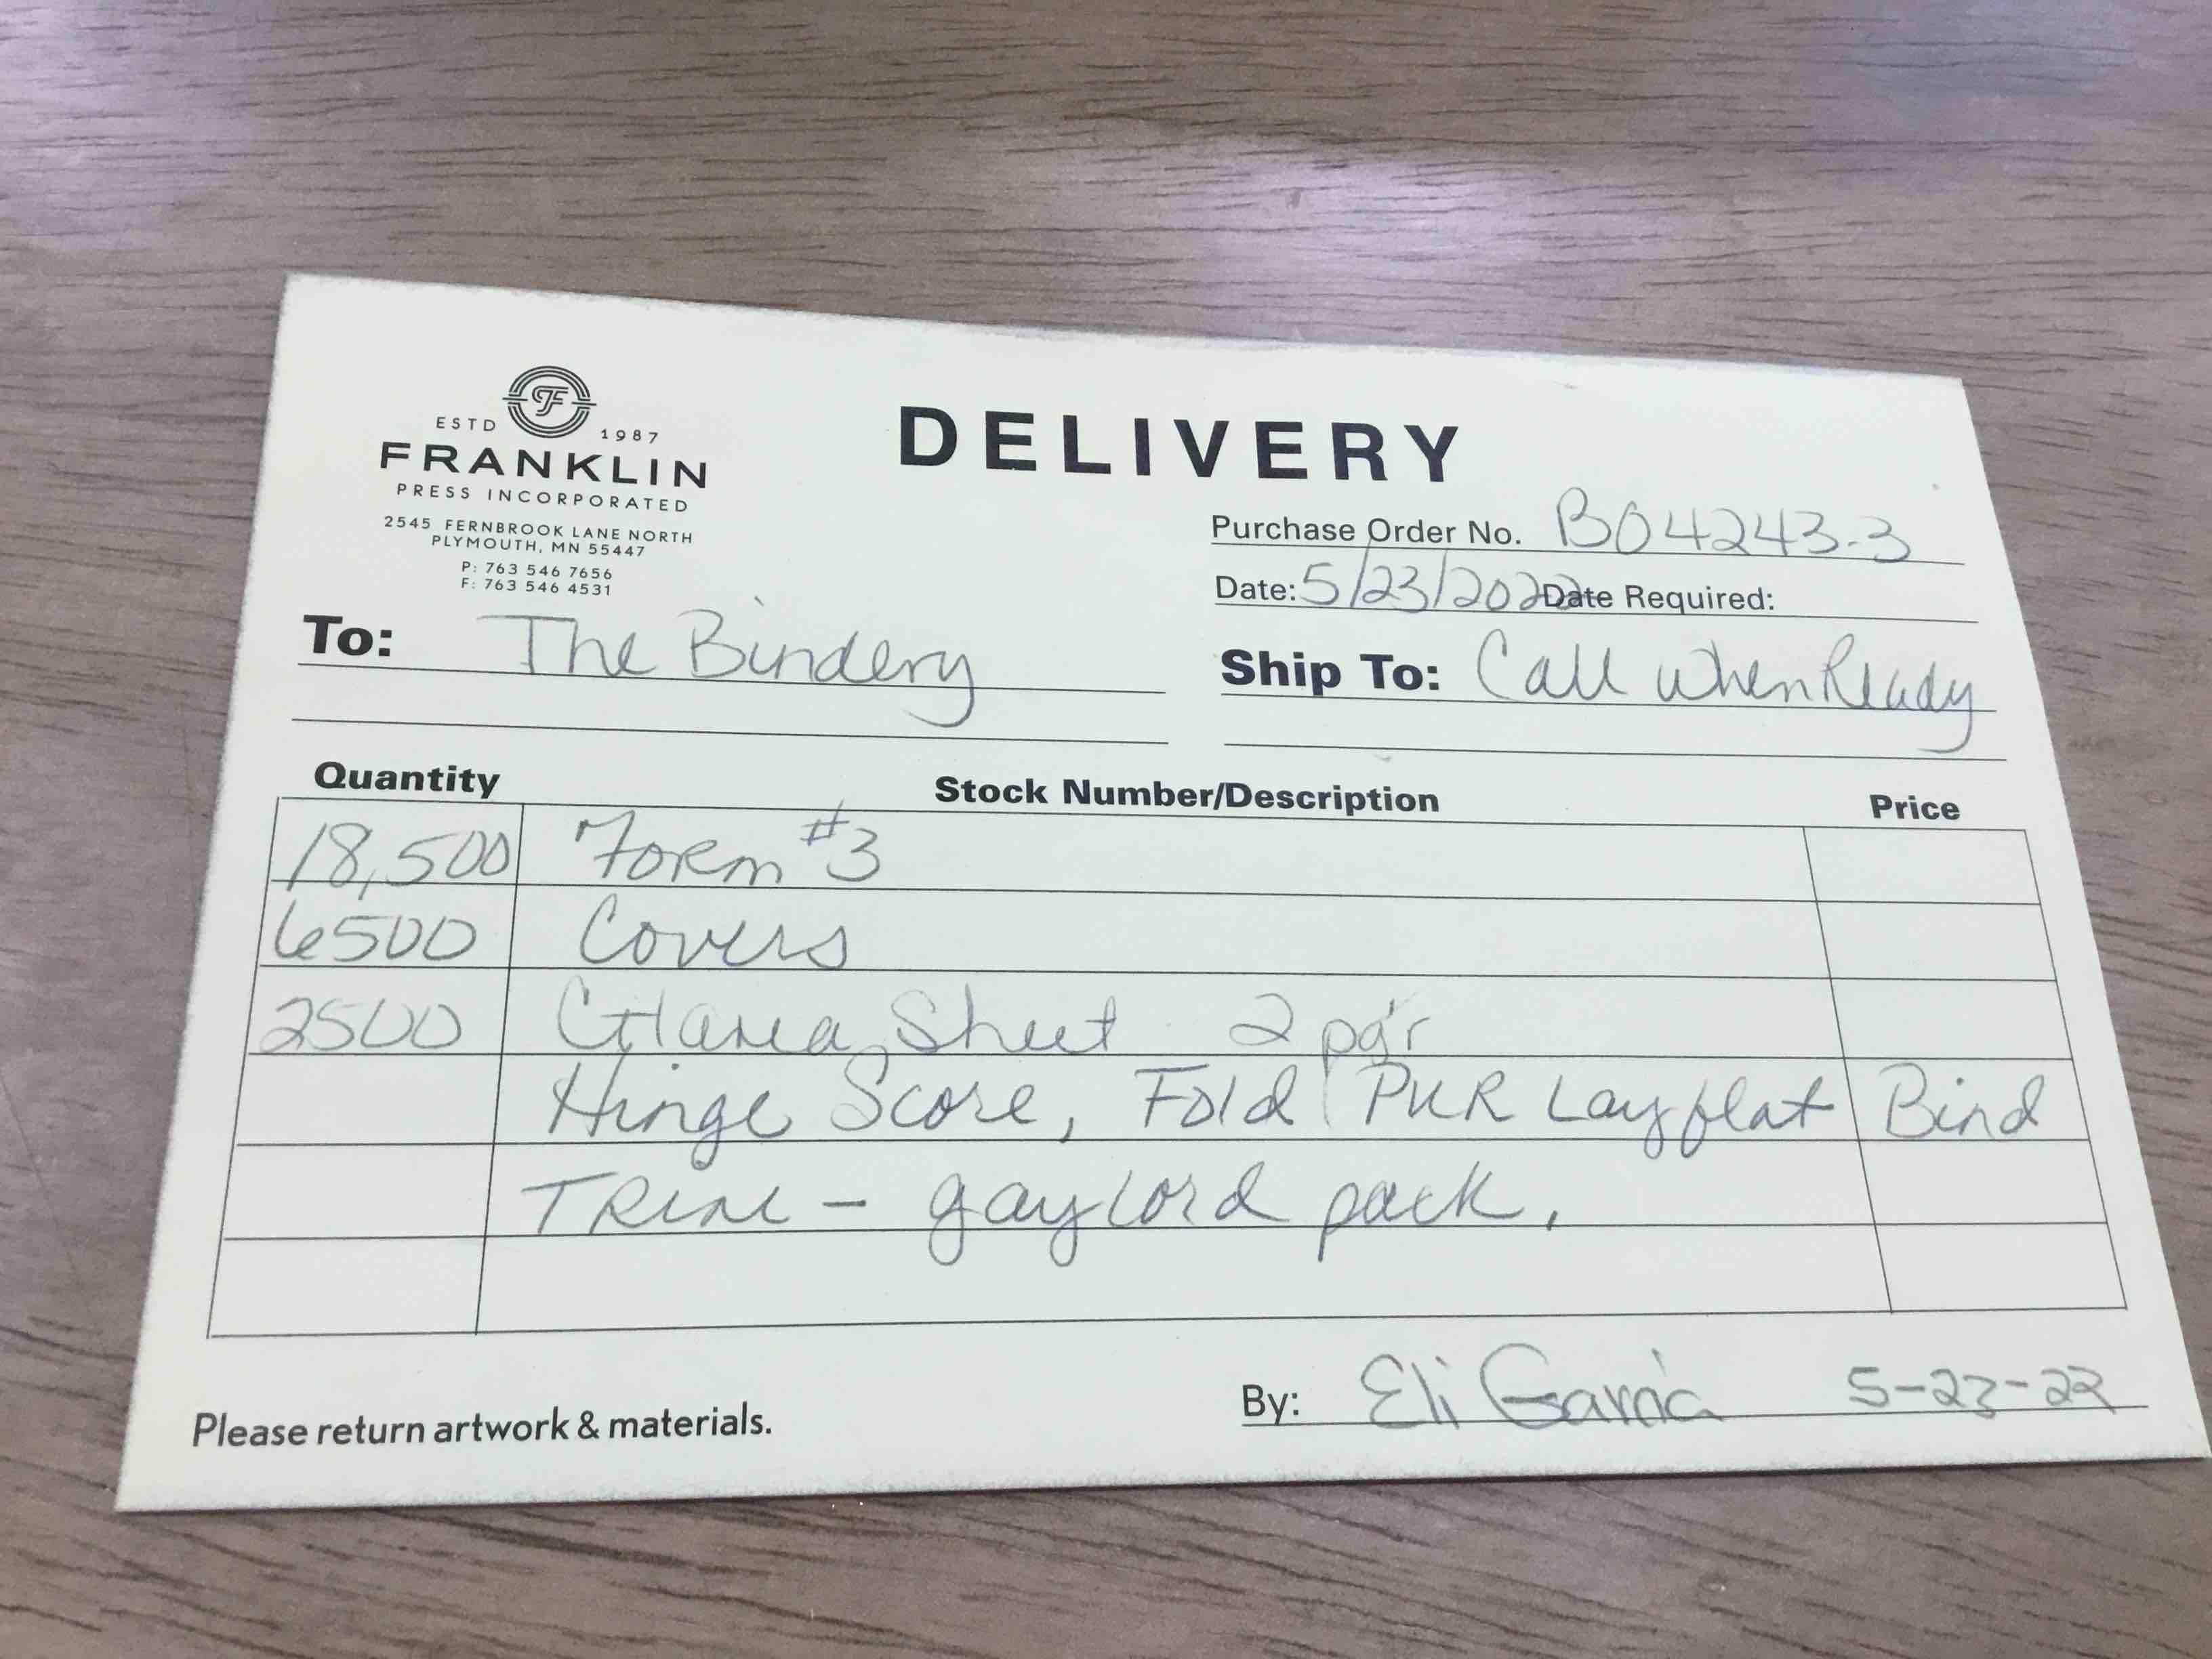 ESTD 1987
FRANKLIN
PRESS INCORPORATED
2545 FERNBROOK LANE NORTH
PLYMOUTH, MN 55447
P: 763 546 7656
F: 763 546 4531
DELIVERY
Purchase Order No. B04243-3
Date: 5/23/2022 Date Required:
To: The Bindery
Ship To: Call when Ready
Quantity Stock Number/Description Price
18,500 Form #3
6500 Covers
2500 Sheet 2 pg'r
Hinge Score, Fold PUR Layflat Bind
TRIM - gaylord pack.
Please return artwork & materials.
By: Eli Garcia 5-23-22